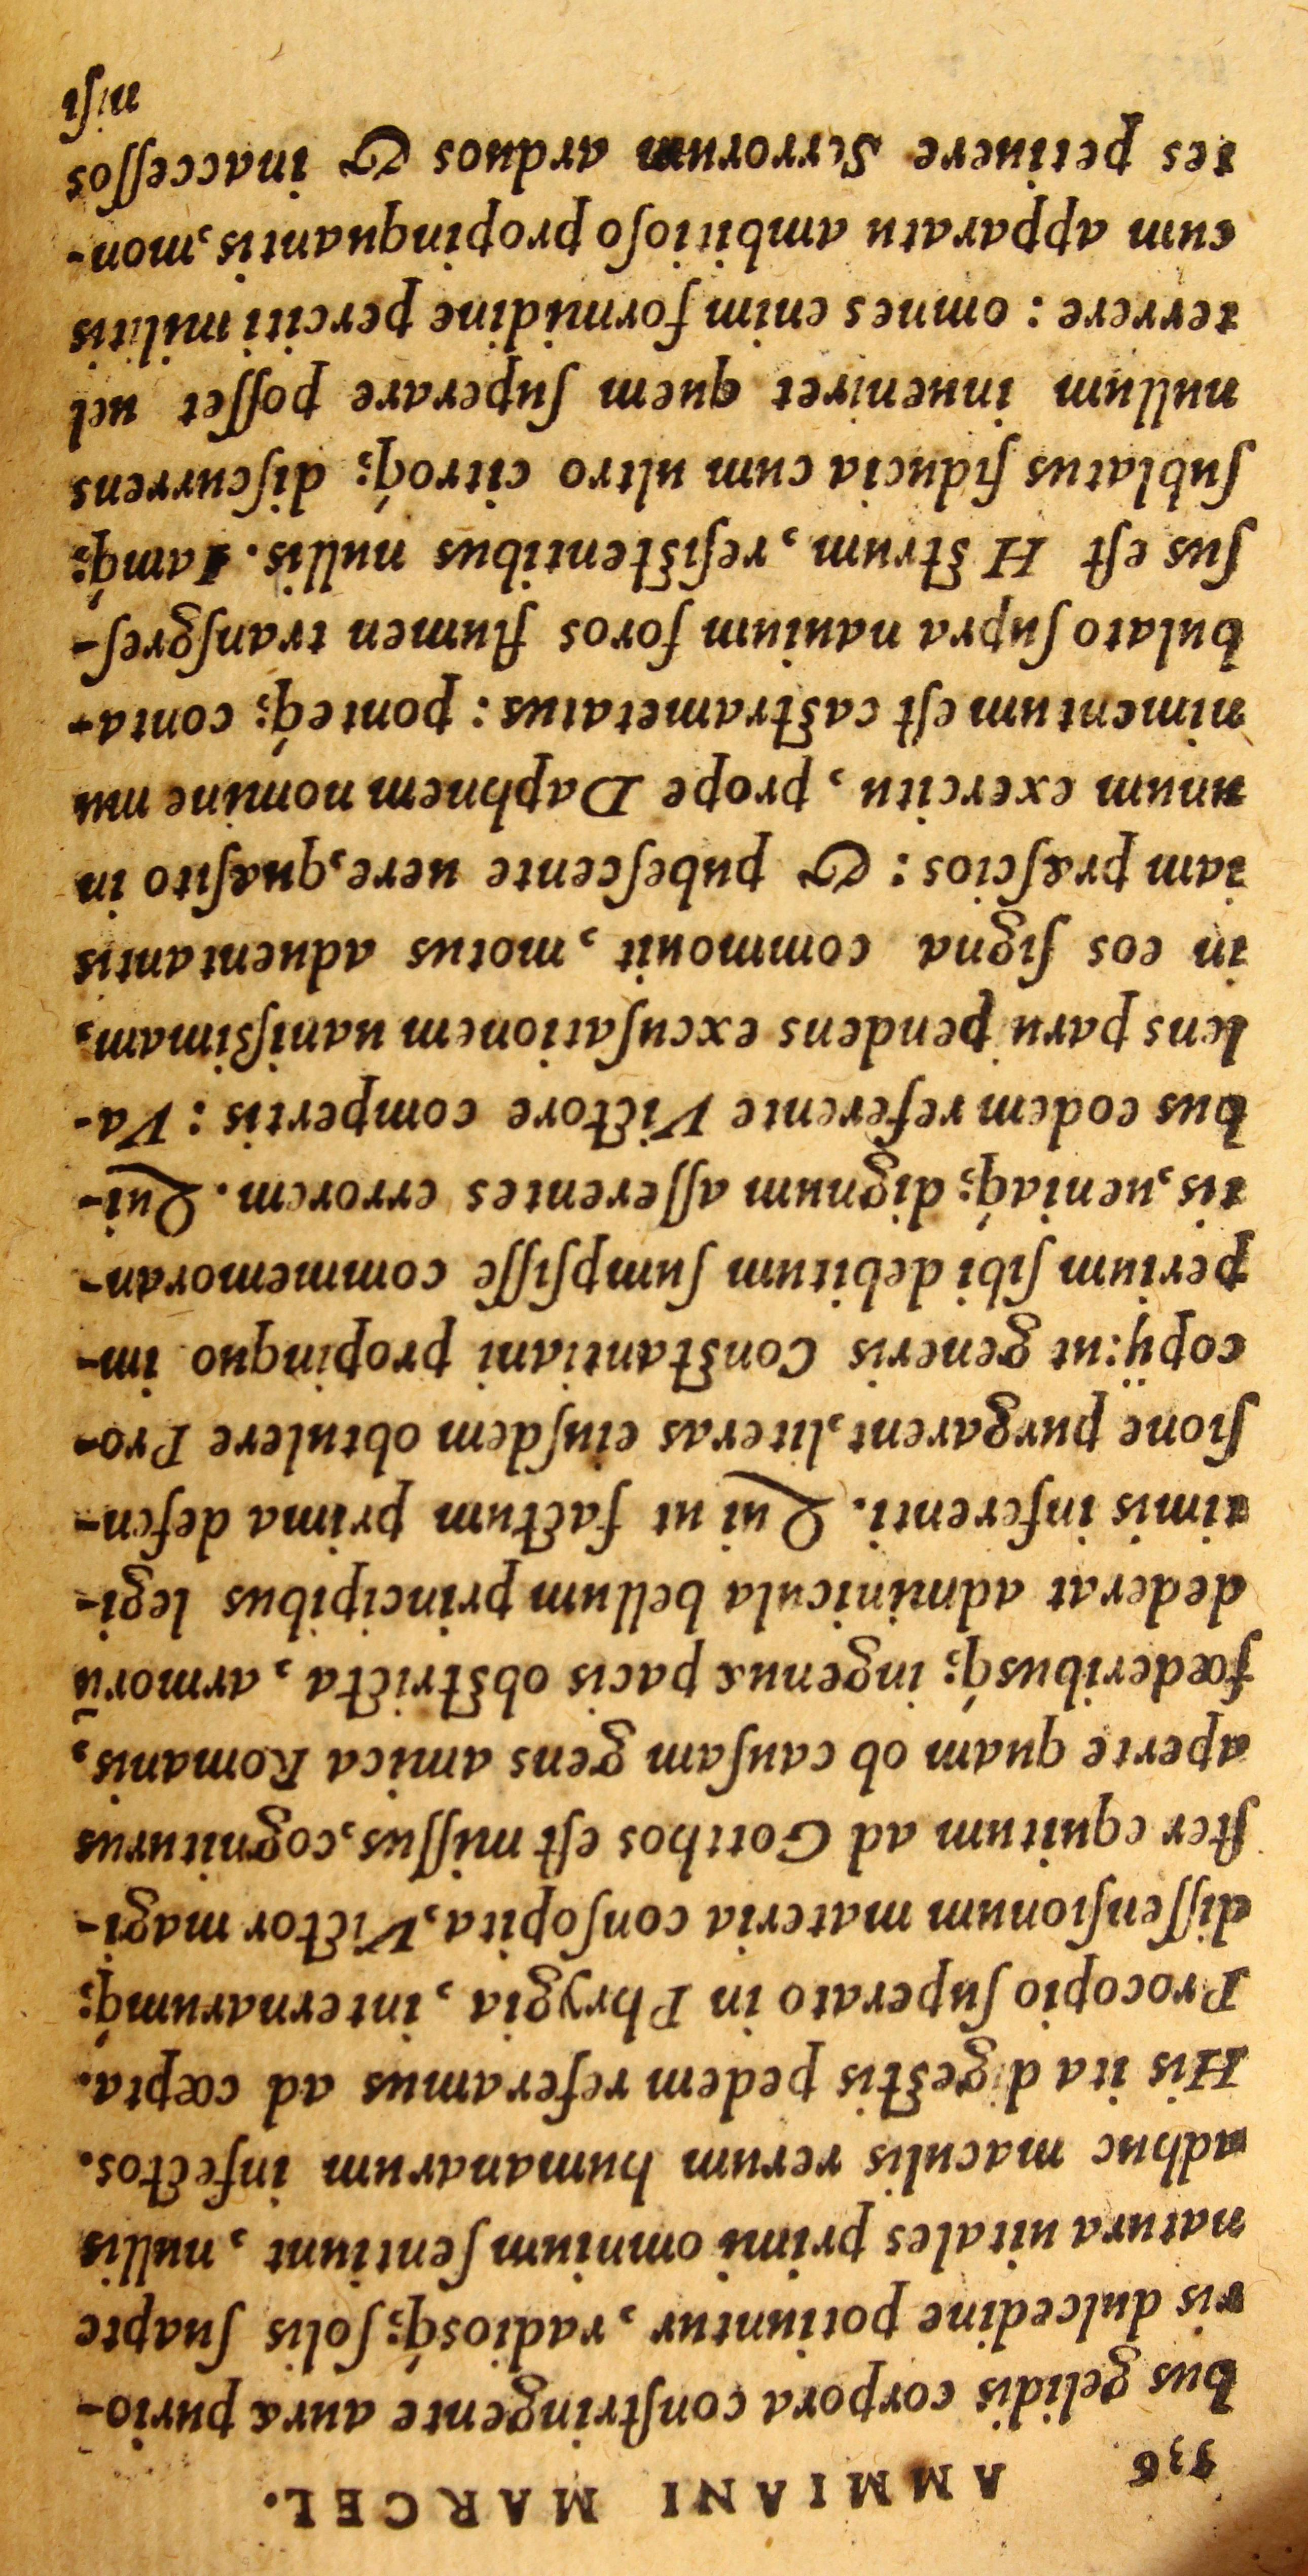 536 AMMIANI MARCEL.
bus gelidis corpora conſtringente auræ purio-
ris dulcedine potiuntur, radiosq́; ſolis ſuapte
natura uitales primi omnium ſentiunt, nullis
adhuc maculis rerum humanarum infectos.
His ita digeſtis pedem referamus ad cœpta.
Procopio ſuperato in Phrygia, internarumq́;
diſſenſionum materia conſopita, Victor magi-
ſter equitum ad Gotthos eſt miſſus, cogniturus
aperte quam ob cauſam gens amica Romanis,
fœderibusq́; ingenuæ pacis obſtricta, armorū
dederat adminicula bellum principibus legi-
timis inferenti. Qui ut factum prima defen-
ſione purgarent, literas eiuſdem obtulere Pro-
copÿ: ut generis Conſtantiani propinquo im-
perium ſibi debitum ſumpſiſſe commemoran-
tis, ueniaq́; dignum aſſerentes errorem. Qui-
bus eodem referente Victore compertis: Va-
lens paru pendens excuſationem uaniſsimam,
in eos ſigna commouit, motus aduentantis
iam præſcios: & pubeſcente uere, quæſito in
unum exercitu, prope Daphnem nomine mu
nimentum eſt caſtrametatus: ponteq́; conta-
bulato ſupra nauium foros flumen tranſgreſ-
ſus eſt Hiſtrum, reſiſtentibus nullis. Iamq́;
ſublatus fiducia cum ultro citroq́; diſcurrens
nullum inueniret quem ſuperare poſſet uel
terrere: omnes enim formidine perciti militis
cum apparatu ambitioſo propinquantis, mon-
tes petiuere Serrorum arduos & inacceſſos
niſi